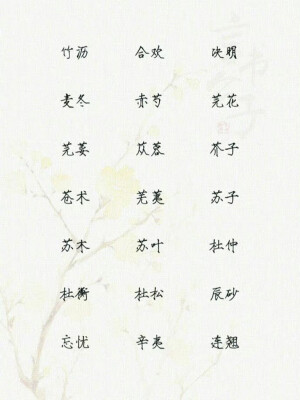 竹沥 合欢 决明
麦冬 赤芍 芫花
芫荽 苁蓉 芥子
苍术 芜荑 苏子
苏木 苏叶 杜仲
杜衡 杜松 辰砂
忘忧 辛夷 连翘